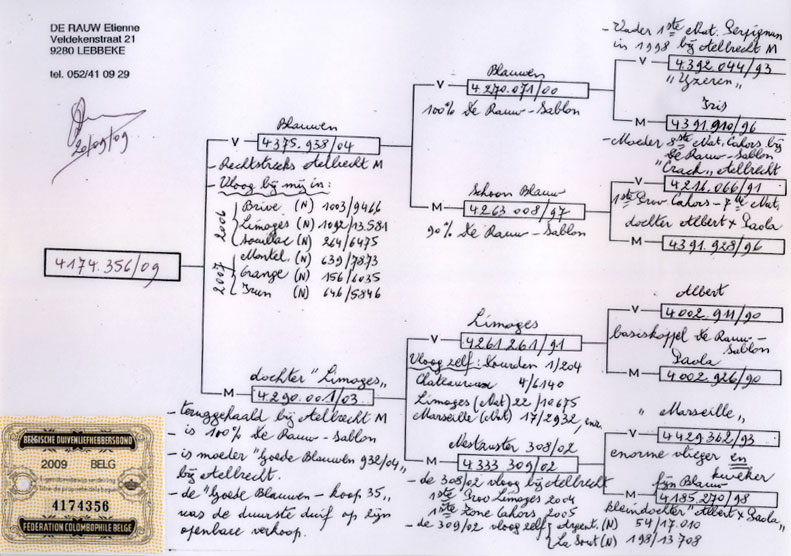 DE RAUW Etienne
Veldekenstraat 21
9280 LEBBEKE
tel. 052/41 09 29
26/09/09
4174.356/09
Blauwen
V 4375.938/04
- Rechtstreeks Aelbrecht M
- Vloog bij mij in:
2006
Brive (N) 1003/9466
Limoges (N) 1092/13.581
Souillac (N) 264/6475
2007
Montel. (N) 639/7873
Orange (N) 156/6035
Irun (N) 646/5846
dochter "Limoges"
M 4290.001/03
- teruggehaald bij Aelbrecht M
- is 100% De Rauw-Sablon
- is moeder "Goede Blauwen 932/04"
bij Aelbrecht.
- de "Goede Blauwen - koop 35"
was de duurste duif op zijn
openbare verkoop.
Blauwen
V 4270.071/00
100% De Rauw-Sablon
Schoon Blauw
M 4263.008/97
90% De Rauw-Sablon
Limoges
V 4261.261/91
Vloog zelf: Lourdes 1/204
Chateauroux 4/6140
Limoges (Nat) 22/10675
Marseille (Nat) 17/2932, enz
Nestzuster 308/02
M 4333.309/02
- de 308/02 vloog bij Aelbrecht
1ste Prov Limoges 2004
1ste Zone Cahors 2005
- de 309/02 vloog zelf Argent. (N) 54/17.010
La Sout (N) 198/13708
- Vader 1ste Nat. Perpignan
in 1998 bij Aelbrecht M
V 4392.044/93
"Yzeren"
Iris
M 4391.910/96
- Moeder 8ste Nat. Cahors bij
De Rauw-Sablon
"Crack" Aelbrecht
V 4216.066/91
1ste Prov Cahors - 7de Nat.
dochter Albert x Paola
M 4391.928/96
Albert
V 4002.911/90
basiskoppel De Rauw-
Sablon
Paola
M 4002.926/90
"Marseille"
V 4429.362/93
enorme vlieger en
kweker
fijn Blauw
M 4185.270/98
kleindochter "Albert x Paola"
BELGISCHE DUIVENLIEFHEBBERSBOND
2009 BELG
4174356
FEDERATION COLOMBOPHILE BELGE